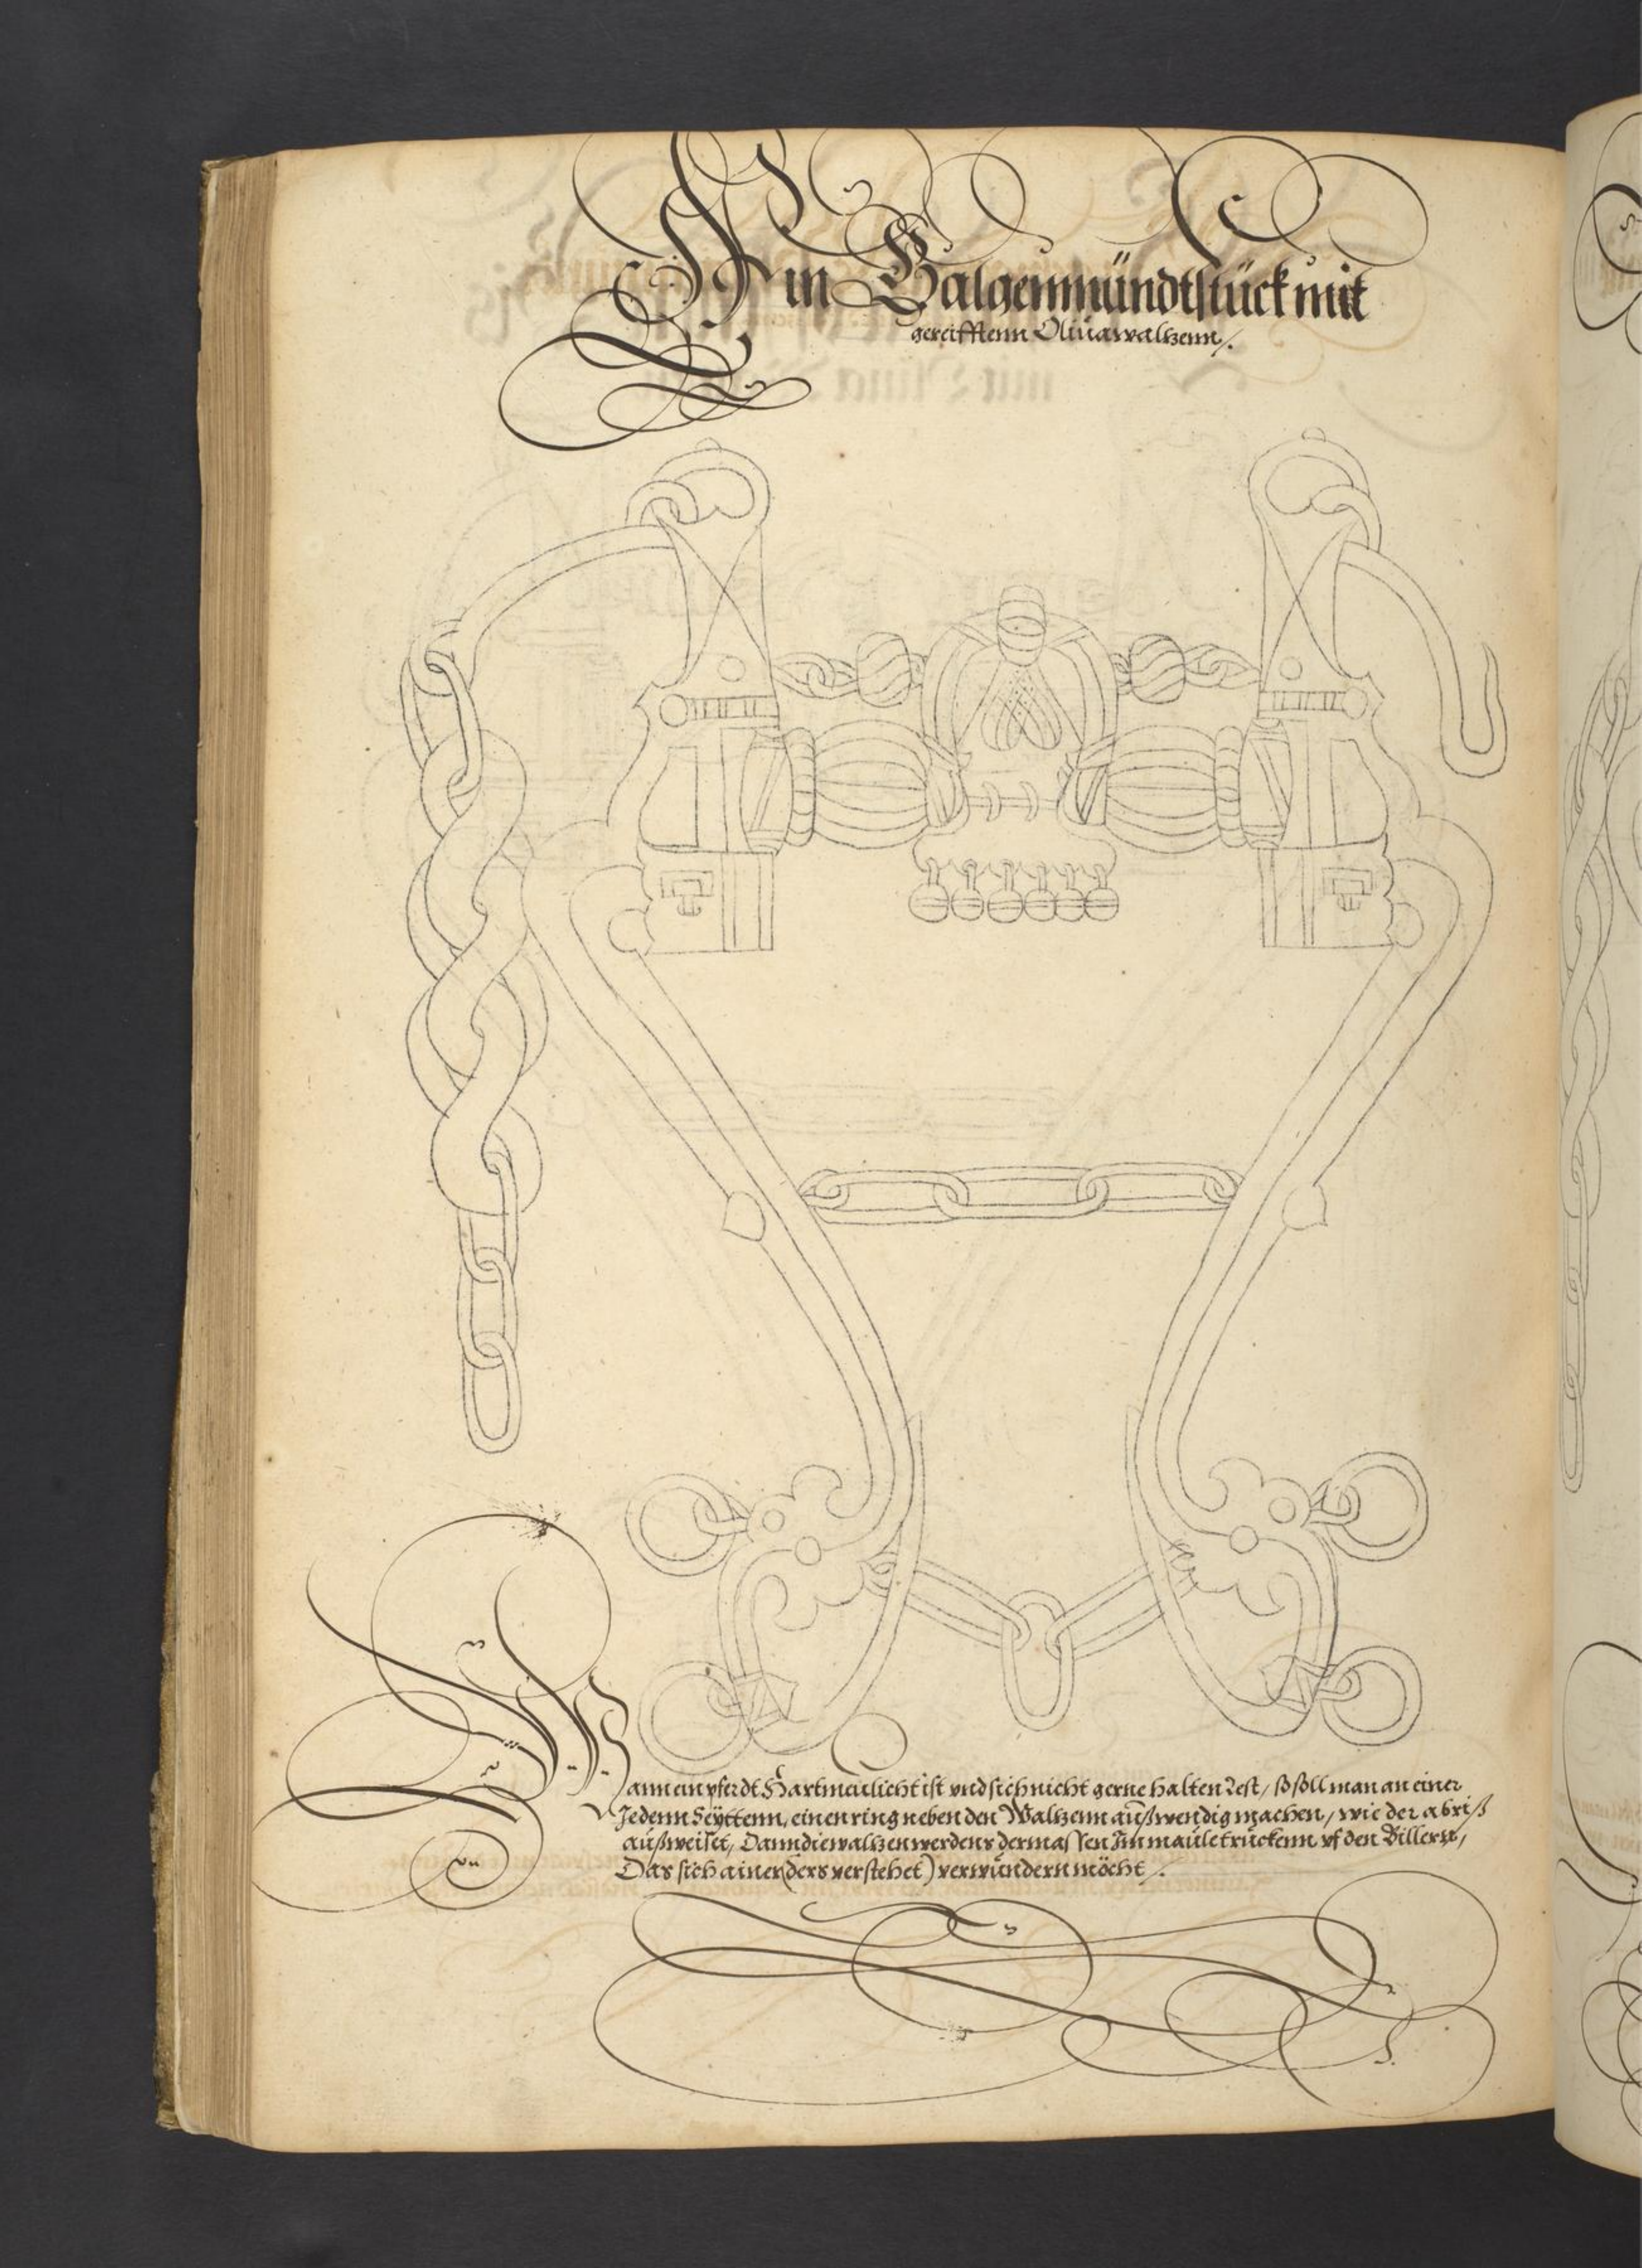 Ein Galgenmündtstück mit
gereifftenn Olivawaltzenn /.
Wann ein pferdt Hartmeulicht ist vnd sich nicht gerne halten lest / so soll man an einer
Jedenn Seyttenn, einen ring neben den Waltzenn außwendig machen, wie der abriß
außweiset, Dann die waltzen werdens dermassen Im maule truckenn vf den Billern,
Das sich ainer (ders verstehet) verwundern möcht /.